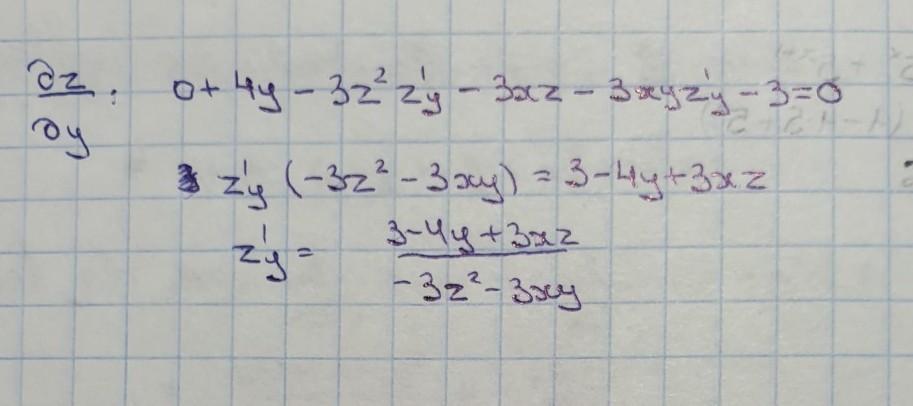 ∂z/∂y : 0 + 4y - 3z² z'y - 3xz - 3xyz'y - 3 = 0
z'y (-3z² - 3xy) = 3 - 4y + 3xz
z'y = (3 - 4y + 3xz)/(-3z² - 3xy)